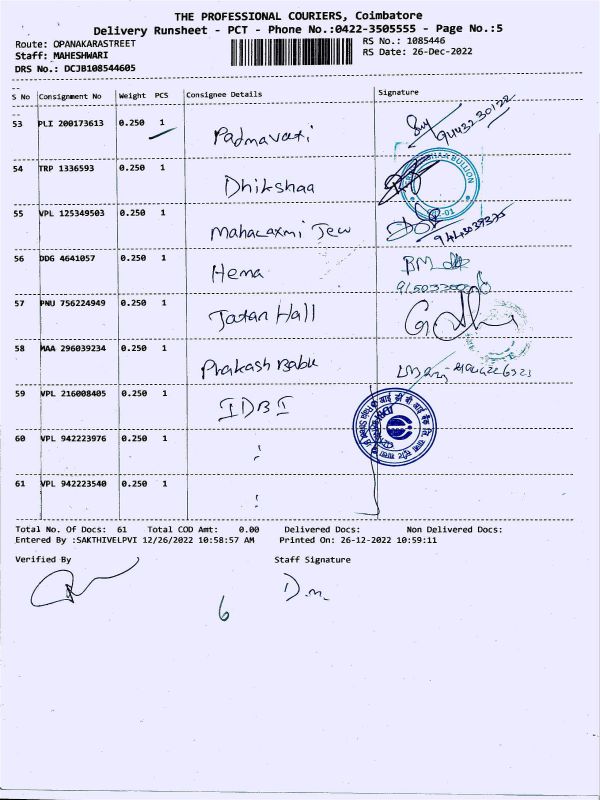 THE PROFESSIONAL COURIERS, Coimbatore
Delivery Runsheet - PCT - Phone No.:0422-3505555 - Page No.:5
Route: OPANAKARASTREET
RS No.: 1085446
Staff: MAHESHWARI
RS Date: 26-Dec-2022
DRS No.: DCJB108544605
S No Consignment No Weight PCS Consignee Details Signature
53 PLI 200173613 0.250 1 Padmavati
54 TRP 1336593 0.250 1 Dhikshaa
55 VPL 125349503 0.250 1 Mahalaxmi Jew
56 DDG 4641057 0.250 1 Hema BM
57 PNU 756224949 0.250 1 Jatan Hall
58 MAA 296039234 0.250 1 Prakash Babu
59 VPL 216008405 0.250 1 IDBI
60 VPL 942223976 0.250 1 "
61 VPL 942223540 0.250 1 "
Total No. Of Docs: 61 Total COD Amt: 0.00 Delivered Docs: Non Delivered Docs:
Entered By :SAKTHIVELPVI 12/26/2022 10:58:57 AM Printed On: 26-12-2022 10:59:11
Verified By Staff Signature
D.m.
6